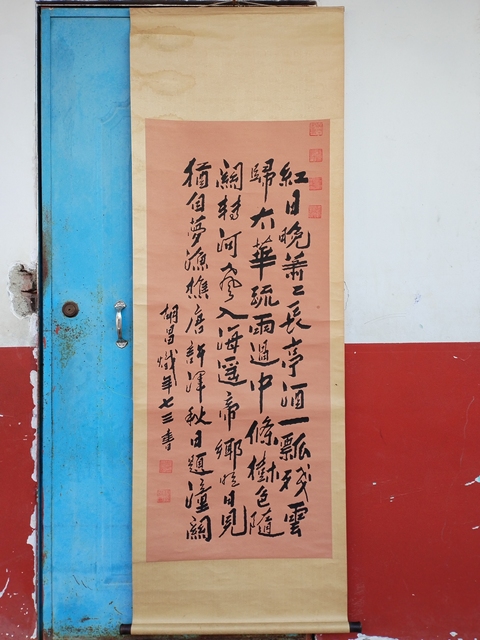 紅日晚蕭〻長亭酒一瓢殘雲
歸太華疏雨過中條樹色隨
關轉河聲入海遙帝鄉日見
猶自夢漁樵唐許渾秋日題潼關
胡昌熾年七三書